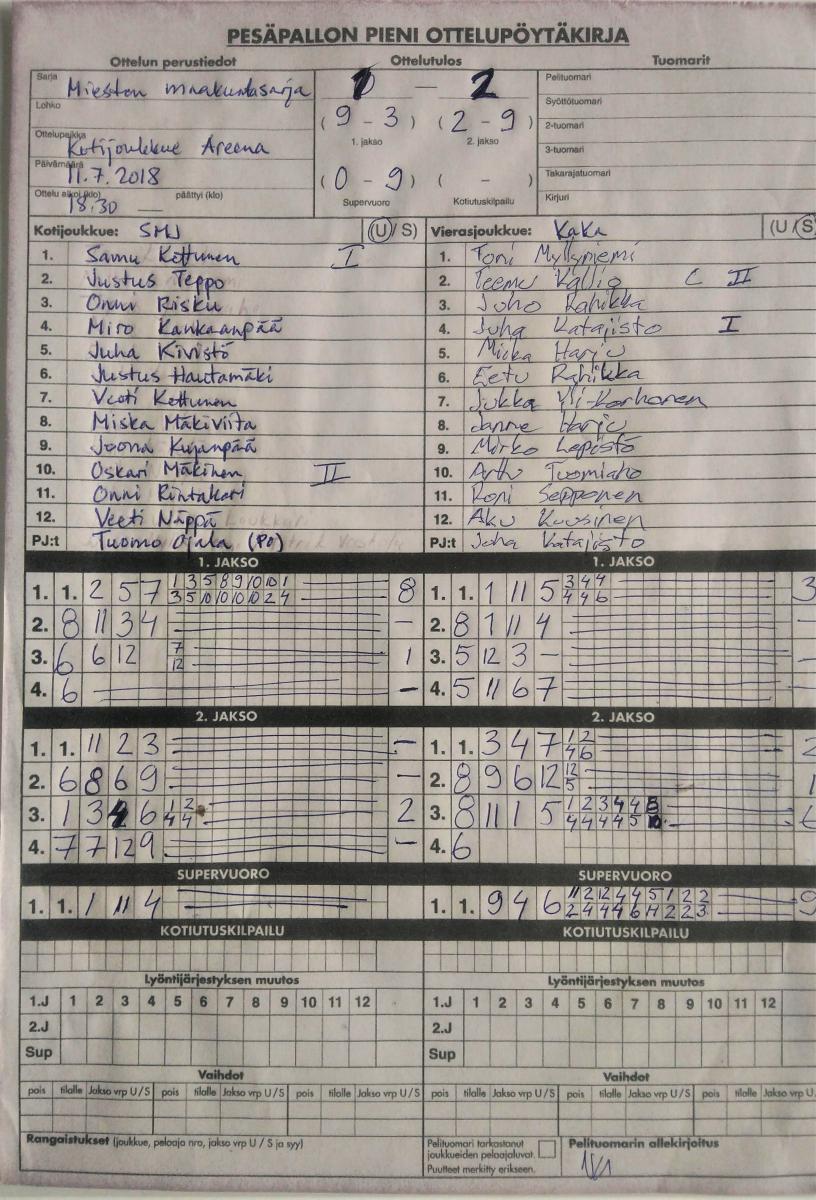 PESÄPALLON PIENI OTTELUPÖYTÄKIRJA
Ottelun perustiedot Ottelutulos Tuomarit
Sarja Miesten maakuntasarja
Lohko
Ottelupaikka Kotijoukkue Areena
Päivämäärä 11.7.2018
Ottelu alkoi (klo) 18:30 päättyi (klo)
— 2
( 9 - 3 ) ( 2 - 9 )
1. jakso 2. jakso
( 0 - 9 ) ( - )
Supervuoro Kotiutuskilpailu
Pelituomari
Syöttötuomari
2-tuomari
3-tuomari
Takarajatuomari
Kirjuri
Kotijoukkue: SMJ (U/S) Vierasjoukkue: KaKa (U/S)
1. Samu Kettunen I 1. Toni Myllyniemi
2. Justus Teppo 2. Teemu Kallio C II
3. Onni Risku 3. Juho Rahikka
4. Miro Kankaanpää 4. Juha Katajisto I
5. Juha Kivistö 5. Miika Harju
6. Justus Hautamäki 6. Eetu Rahikka
7. Veeti Kettunen 7. Jukka Yli-Korhonen
8. Miska Mäkiviita 8. Janne Harju
9. Joona Kujanpää 9. Mirko Lepistö
10. Oskari Mäkinen II 10. Arttu Tuomiaho
11. Onni Rintakari 11. Roni Sepponen
12. Veeti Näppä 12. Aku Kuusinen
PJ:t Tuomo Ojala (PO) PJ:t Juha Katajisto
1. JAKSO 1. JAKSO
1. 1. 2 5 7 1 3 5 8 9 10 10 1 8 1. 1. 1 11 5 3 4 4 3
3 5 10 10 10 10 2 4 4 4 6
2. 8 11 3 4 — 2. 8 1 11 4 —
3. 6 6 12 7 1 3. 5 12 3 — —
12
4. 6 — 4. 5 11 6 7 —
2. JAKSO 2. JAKSO
1. 1. 11 2 3 — 1. 1. 3 4 7 1 2 2
4 6
2. 6 8 6 9 — 2. 8 9 6 12 12 1
5
3. 1 3 4 6 1 2 2 3. 8 11 1 5 1 2 3 4 4 8 6
4 4 4 4 4 4 5 10
4. 7 7 12 9 — 4. 6
SUPERVUORO SUPERVUORO
1. 1. 1 11 4 1. 1. 9 4 6 11 2 12 4 4 5 1 2 2 9
2 4 4 4 6 11 2 2 3
KOTIUTUSKILPAILU KOTIUTUSKILPAILU
Lyöntijärjestyksen muutos Lyöntijärjestyksen muutos
1.J 1 2 3 4 5 6 7 8 9 10 11 12 1.J 1 2 3 4 5 6 7 8 9 10 11 12
2.J 2.J
Sup Sup
Vaihdot Vaihdot
pois tilalle Jakso vrp U/S pois tilalle Jakso vrp U/S pois tilalle Jakso vrp U/S pois tilalle Jakso vrp U/S pois tilalle Jakso vrp U/S pois tilalle Jakso vrp U
Rangaistukset (joukkue, pelaaja nro, jakso vrp U / S ja syy)
Pelituomari tarkastanut
joukkueiden pelaajaluvat.
Puutteet merkitty erikseen.
Pelituomarin allekirjoitus